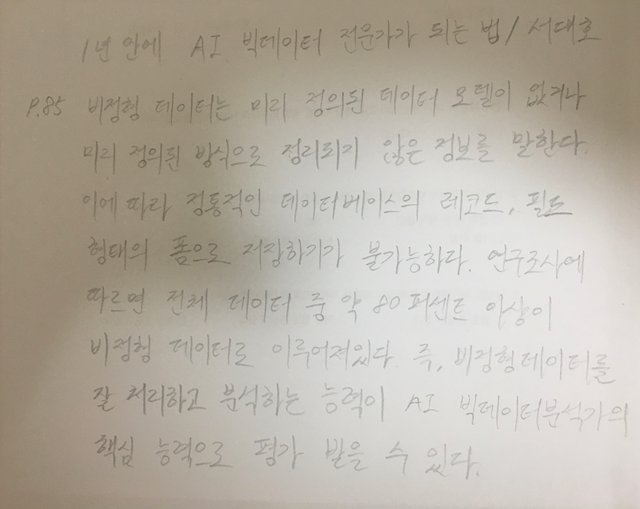 1년 안에 AI 빅데이터 전문가가 되는 법 / 서대호
P.85 비정형 데이터는 미리 정의된 데이터 모델이 없거나
미리 정의된 방식으로 정리되지 않은 정보를 말한다.
이에 따라 정통적인 데이터베이스의 레코드, 필드
형태의 폼으로 저장하기가 불가능하다. 연구조사에
따르면 전체 데이터 중 약 80퍼센트 이상이
비정형 데이터로 이루어져있다. 즉, 비정형데이터를
잘 처리하고 분석하는 능력이 AI 빅데이터분석가의
핵심 능력으로 평가 받을 수 있다.